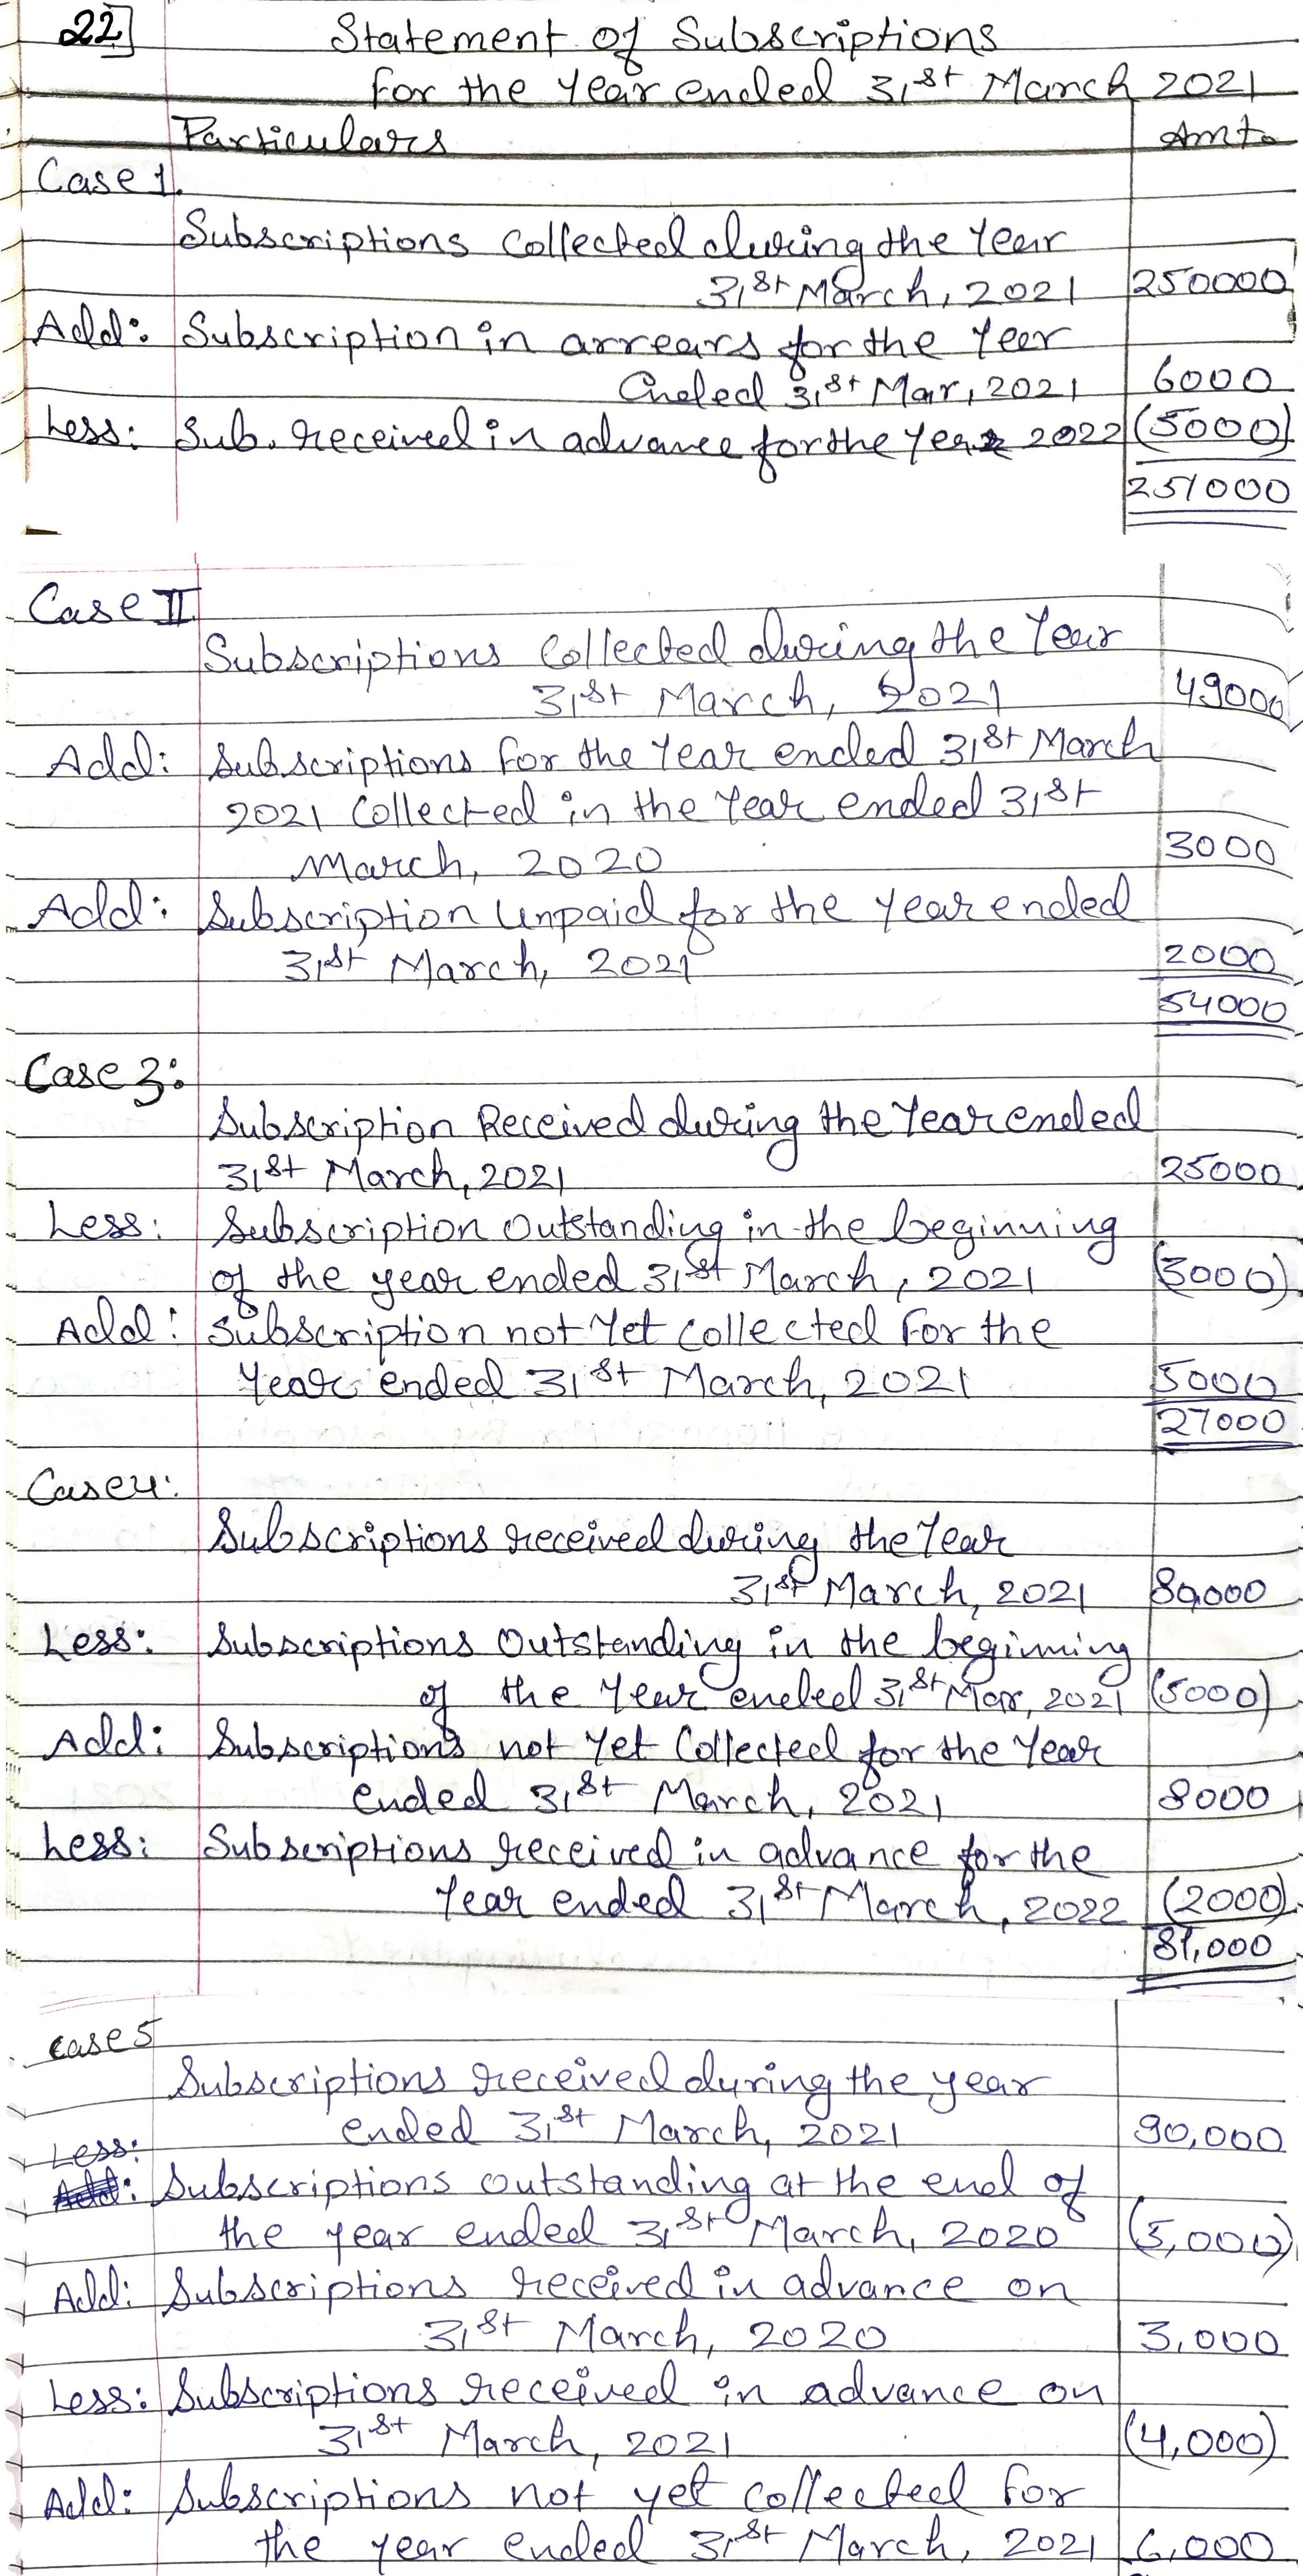 22]
Statement of Subscriptions
for the Year ended 31st March 2021
Particulars Amt.
Case 1.
Subscriptions Collected during the Year
31st March, 2021 250000
Add: Subscription in arrears for the Year
Ended 31st Mar, 2021 6000
Less: Sub. received in advance for the Year 2022 (5000)
251000
Case II
Subscriptions Collected during the Year
31st March, 2021 49000
Add: Subscriptions for the Year ended 31st March
2021 Collected in the Year ended 31st
March, 2020 3000
Add: Subscription Unpaid for the year ended
31st March, 2021 2000
54000
Case 3:
Subscription Received during the Year ended
31st March, 2021 25000
Less: Subscription Outstanding in the beginning
of the year ended 31st March, 2021 (3000)
Add: Subscription not Yet Collected For the
Year ended 31st March, 2021 5000
27000
Case 4:
Subscriptions received during the Year
31st March, 2021 80,000
Less: Subscriptions Outstanding in the beginning
of the Year ended 31st Mar, 2021 (5000)
Add: Subscriptions not Yet Collected for the Year
Ended 31st March, 2021 8000
Less: Subscriptions received in advance for the
Year ended 31st March, 2022 (2000)
81,000
Case 5
Subscriptions received during the year
ended 31st March, 2021 90,000
Less:
Subscriptions outstanding at the end of
the year ended 31st March, 2020 (5,000)
Add: Subscriptions received in advance on
31st March, 2020 3,000
Less: Subscriptions received in advance on
31st March, 2021 (4,000)
Add: Subscriptions not yet collected for
the year ended 31st March, 2021 6,000